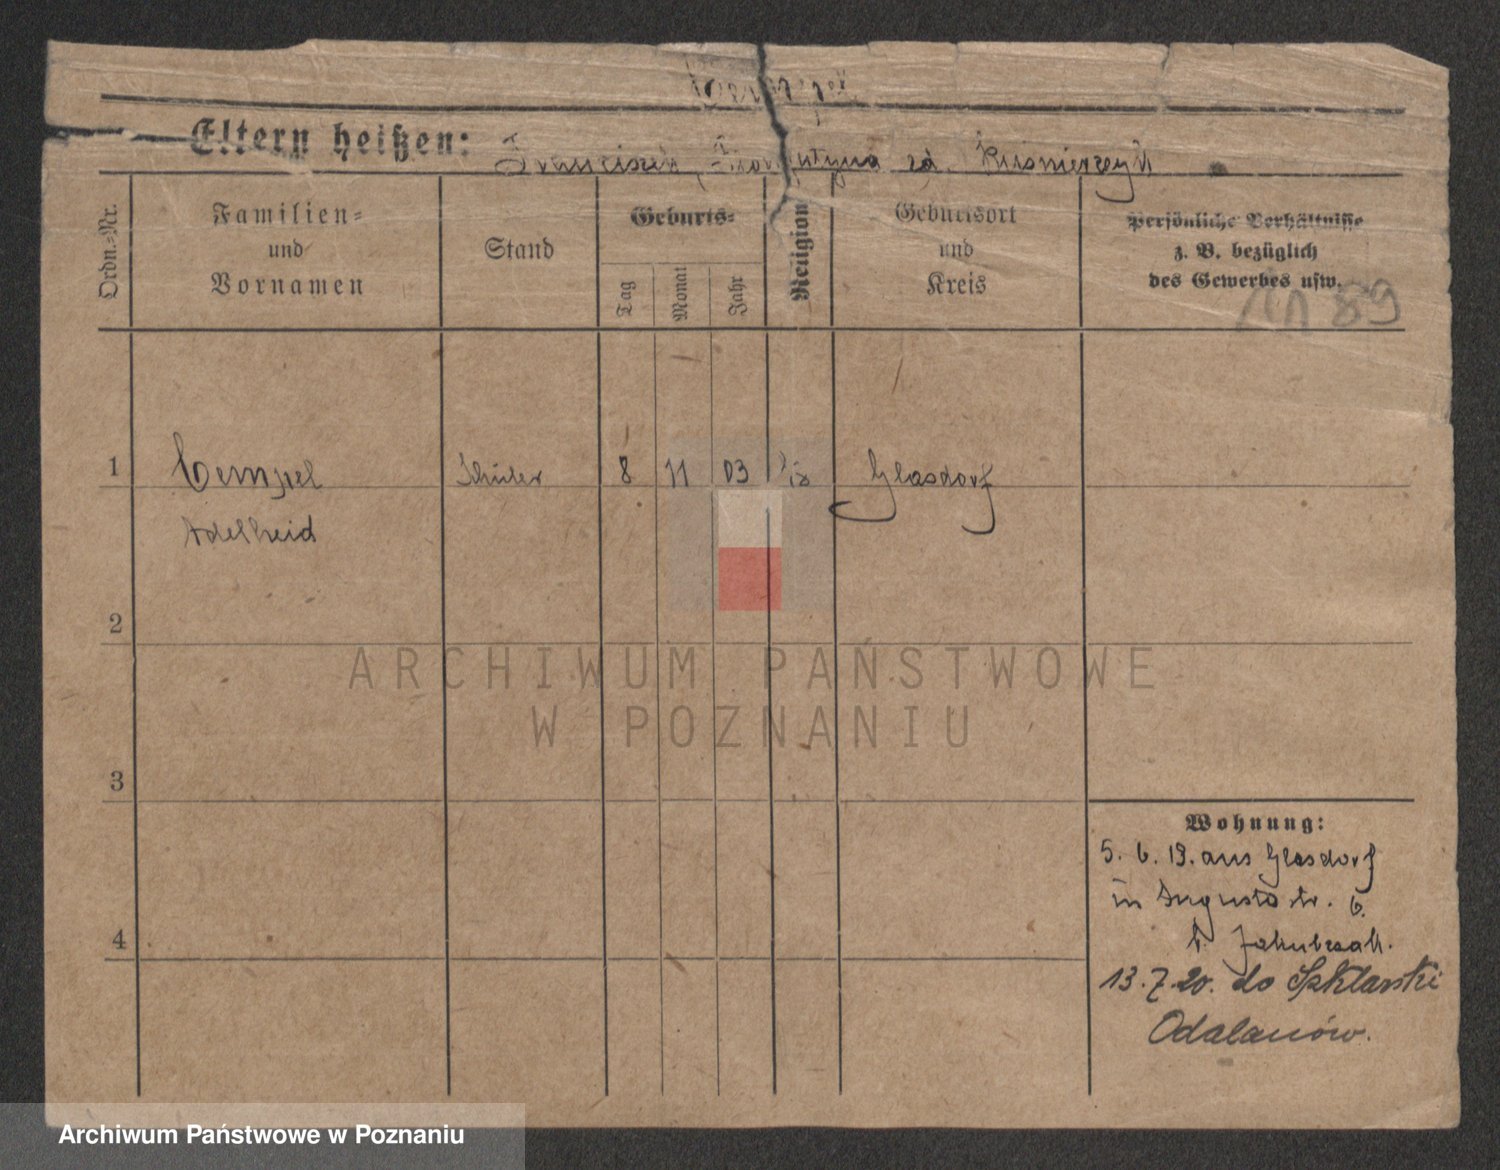 Eltern heißen: Franciszek, Florentyna zd. Kuśnierczyk
Ordn.-Nr.
Familien-
und
Vornamen
Stand
Geburts-
Tag
Monat
Jahr
Religion
Geburtsort
und
Kreis
Persönliche Verhältnisse
z. B. bezüglich
des Gewerbes usw.
89
1
Tempel
Schüler
8
11
03
Glasdorf
Adelheid
2
3
4
ARCHIWUM PAŃSTWOWE
W POZNANIU
Wohnung:
5. 6. 19. aus Glasdorf
in Augustastr. 6.
b. Jakubczak.
13.7.20. do Szklarski
Odalanów.
Archiwum Państwowe w Poznaniu